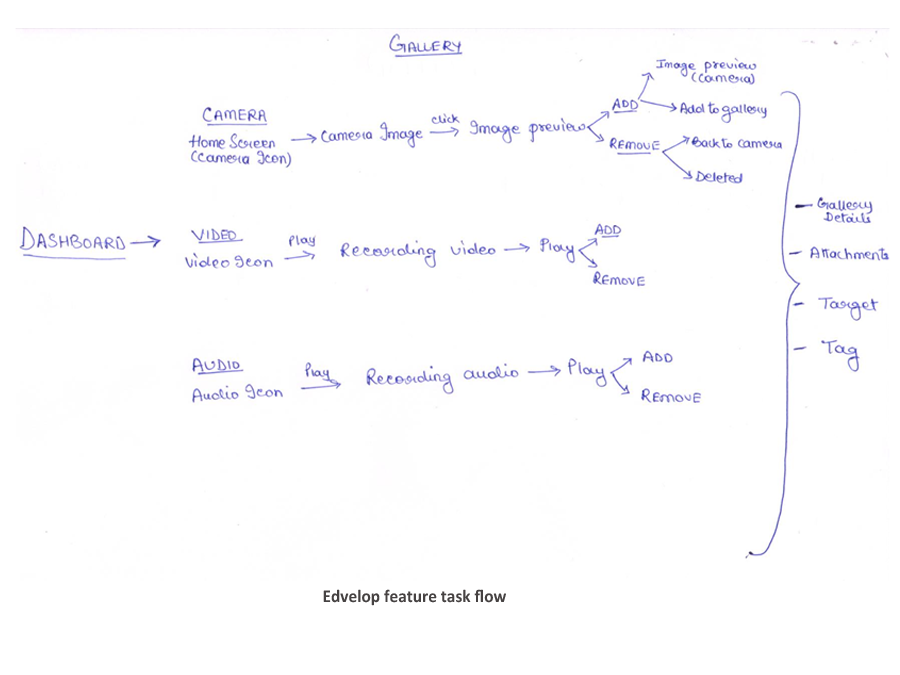 GALLERY
CAMERA
Home Screen
(Camera Icon)
Camera Image
click
Image preview
ADD
Image preview
(Camera)
Add to gallery
REMOVE
Back to camera
Deleted
DASHBOARD
VIDEO
Video Icon
Play
Recording video
Play
ADD
REMOVE
AUDIO
Audio Icon
Play
Recording audio
Play
ADD
REMOVE
- Gallery
Details
- Attachments
- Target
- Tag
Edvelop feature task flow